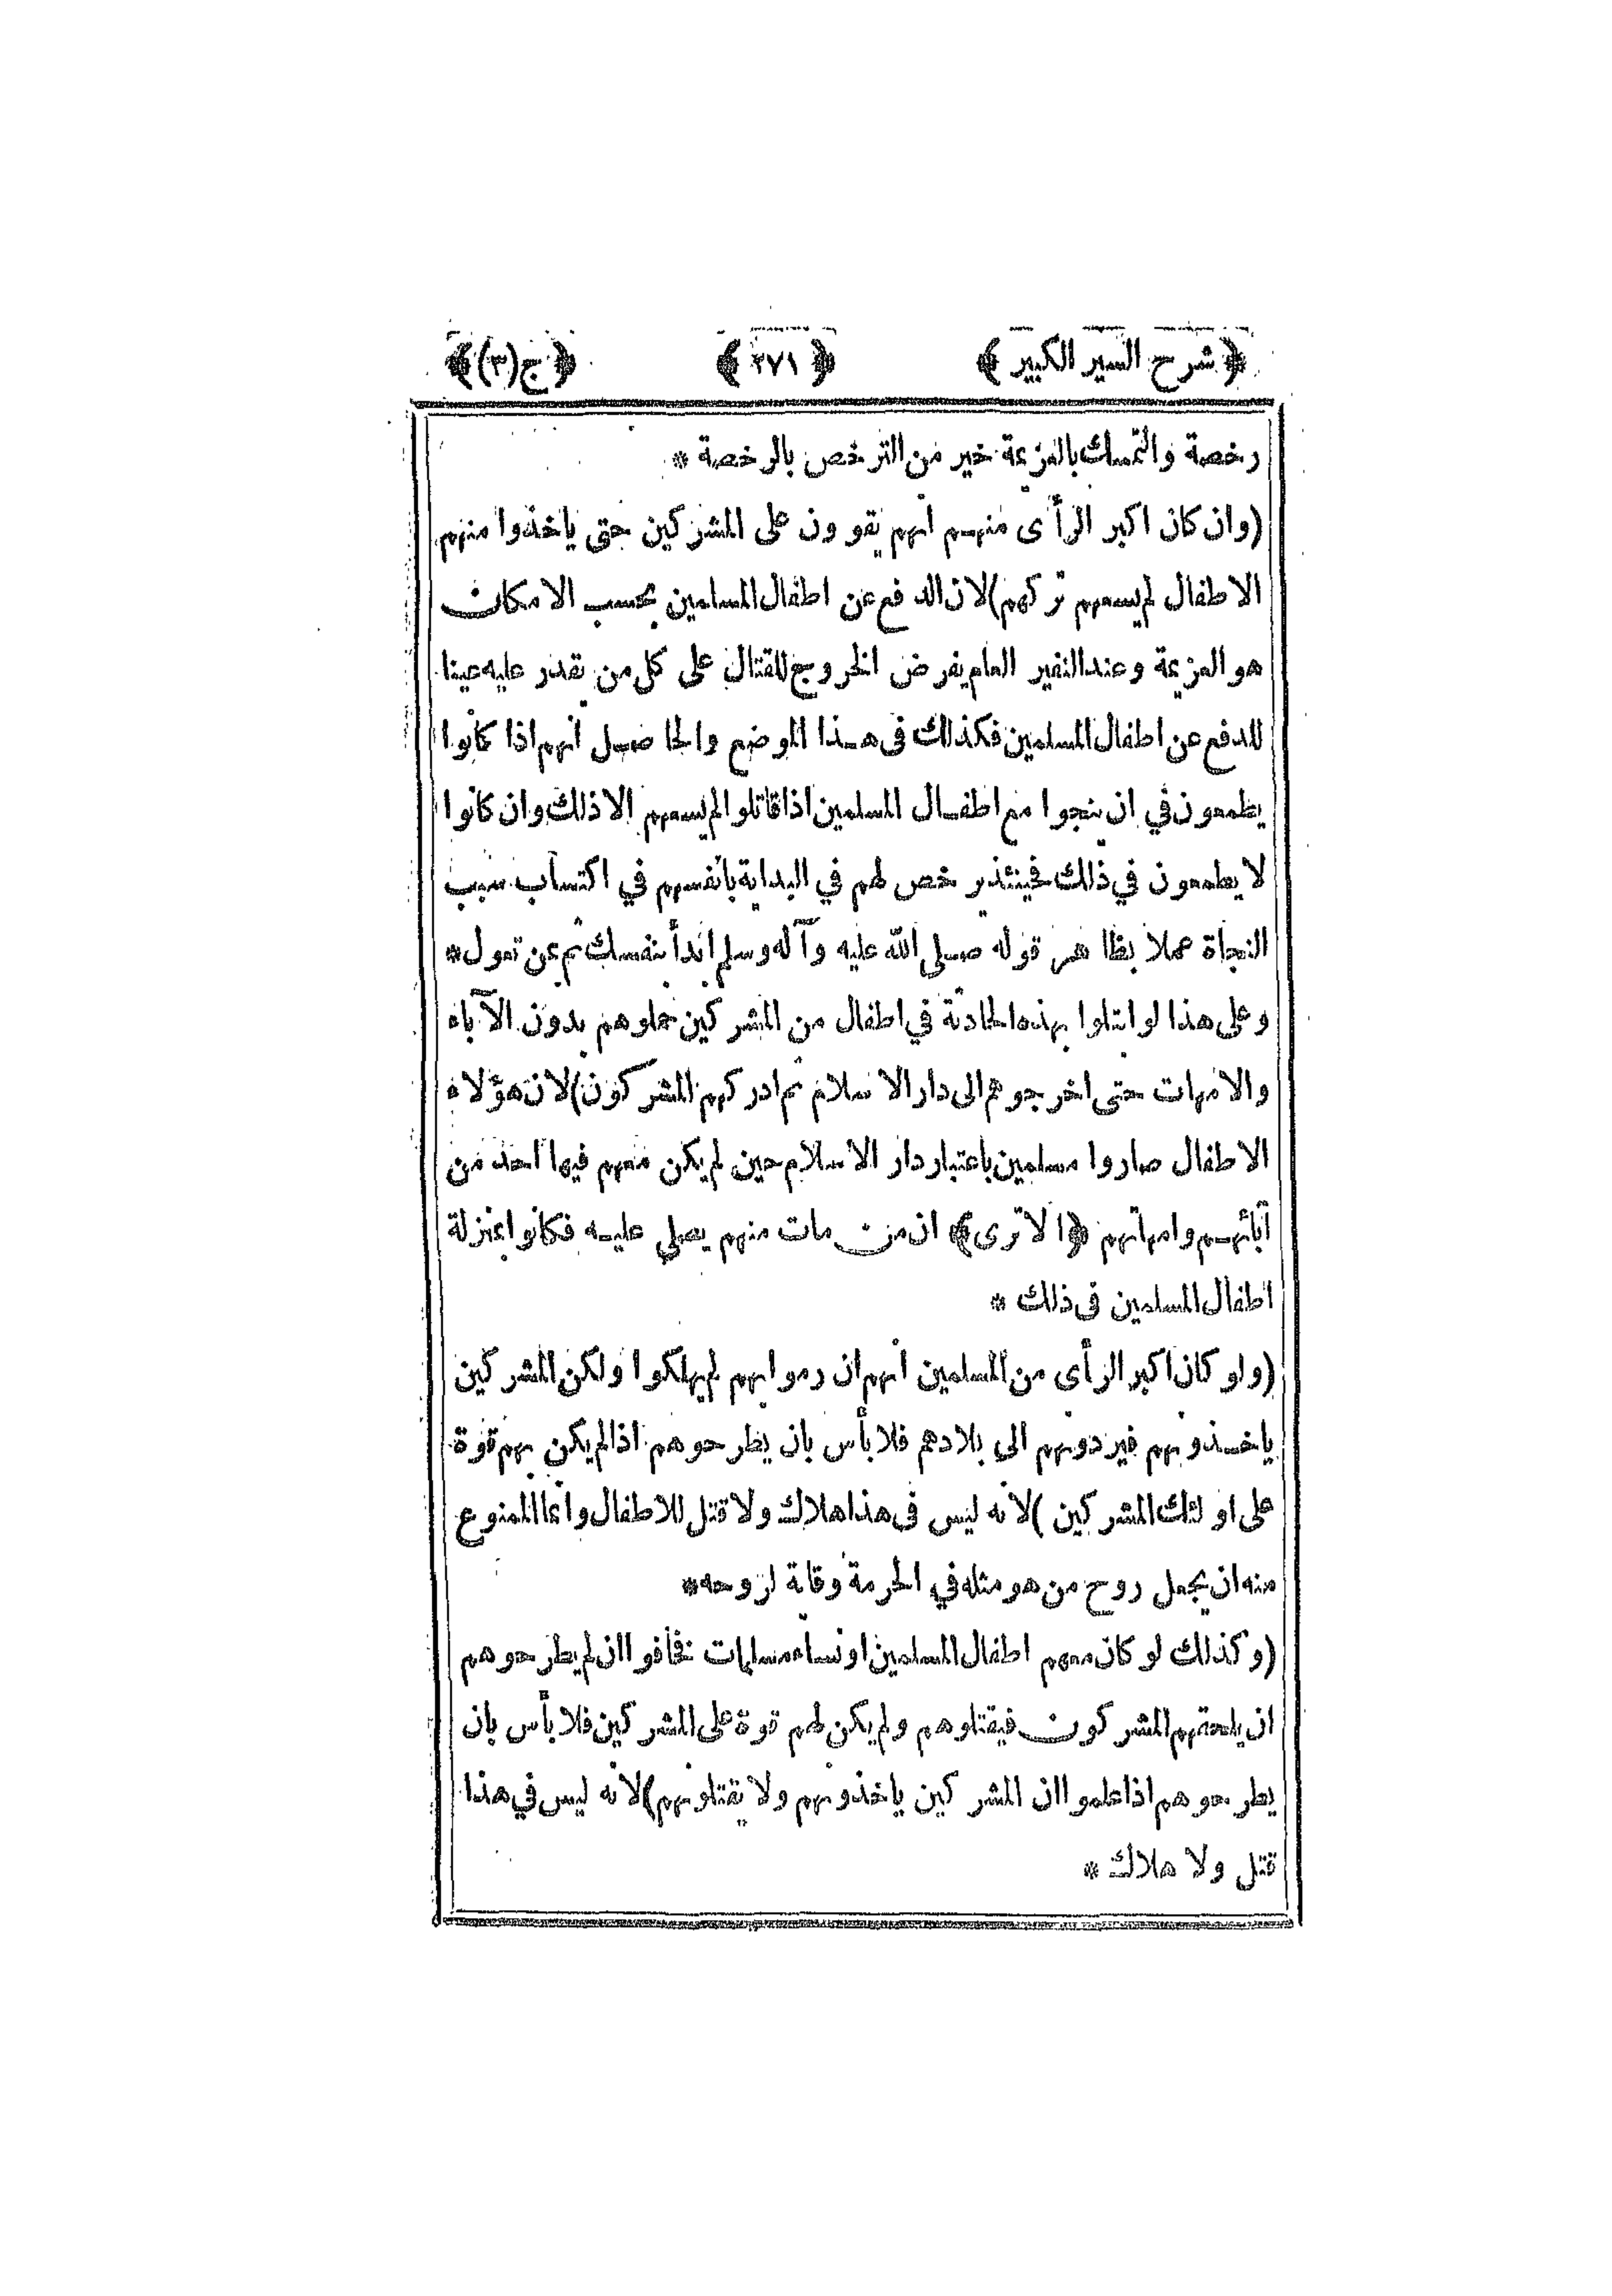 ﴿ شرح السير الكبير ﴾ ﴿ ٢٧١ ﴾ ﴿ ج(٣) ﴾
رخصة والتمسك بالعزيمة خير من الترخص بالرخصة *
(وان كان اكبر الرأى منهم انهم يقوون على المشركين حتى ياخذوا منهم
الاطفال لم يسعهم تركهم) لان الدفع عن اطفال المسلمين بحسب الامكان
هو العزيمة وعند النفير العام يفرض الخروج للقتال على كل من يقدر عليه عينا
للدفع عن اطفال المسلمين فكذلك فى هذا الموضع والحاصل انهم اذا كانوا
يطمعون في ان ينجوا مع اطفال المسلمين اذا قاتلوا لم يسعهم الا ذلك وان كانوا
لا يطمعون في ذلك فحينئذ يرخص لهم في البداية بانفسهم في اكتساب سبب
النجاة عملا بظاهر قوله صلى الله عليه وآله وسلم ابدأ بنفسك ثم بمن تعول *
وعلى هذا لو ابتلوا بهذه الحادثة في اطفال من المشركين حملوهم بدون الآباء
والامهات حتى اخرجوهم الى دار الاسلام ثم ادركهم المشركون) لان هؤلاء
الاطفال صاروا مسلمين باعتبار دار الاسلام حين لم يكن معهم فيها احد من
آبائهم وامهاتهم ﴿الا ترى﴾ ان من مات منهم يصلى عليه فكانوا بمنزلة
اطفال المسلمين فى ذلك *
(ولو كان اكبر الرأى من المسلمين انهم ان رموا بهم لم يهلكوا ولكن المشركين
ياخذونهم فيردونهم الى بلادهم فلا بأس بان يطرحوهم اذا لم يكن بهم قوة
على اولئك المشركين) لانه ليس فى هذا هلاك ولا قتل للاطفال وانما الممنوع
منه ان يجعل روح من هو مثله في الحرمة وقاية لروحه *
(وكذلك لو كان معهم اطفال المسلمين او نساء مسلمات نخافوا ان لم يطرحوهم
ان يلحقهم المشركون فيقتلوهم ولم يكن لهم قوة على المشركين فلا بأس بان
يطرحوهم اذا علموا ان المشركين ياخذونهم ولا يقتلونهم) لانه ليس في هذا
قتل ولا هلاك *